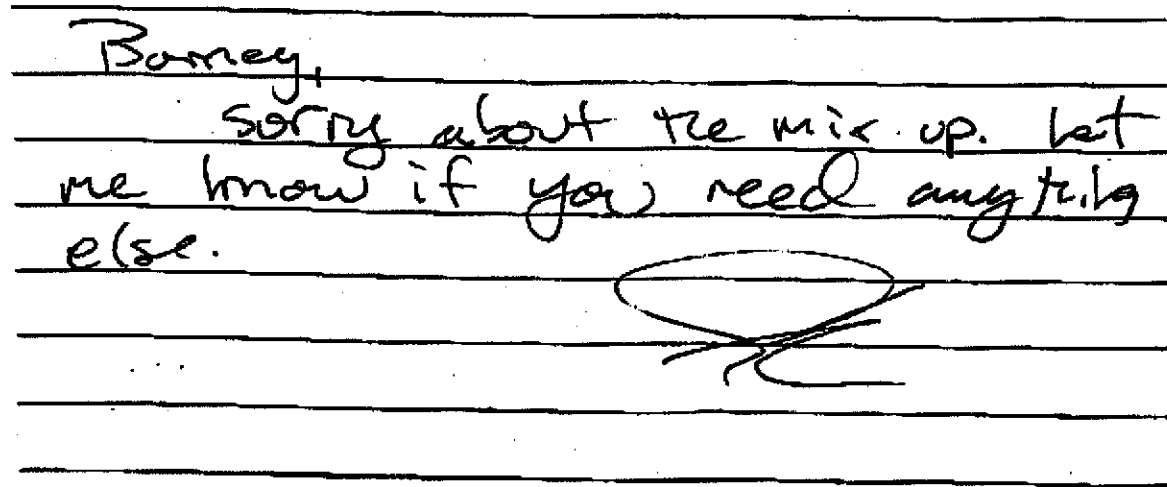 Barney,
Sorry about the mix up. Let
me know if you need anything
else.